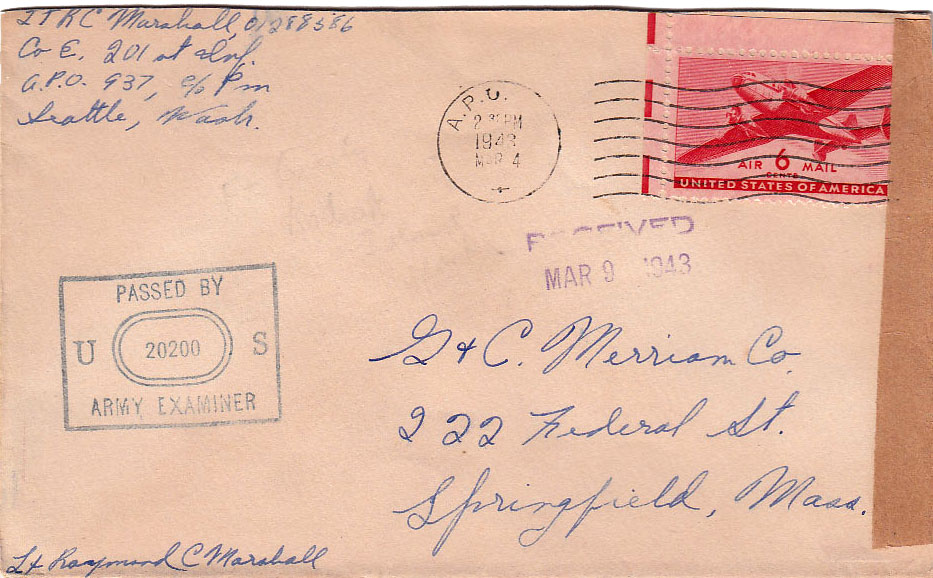 LT R C Marshall, O/288586
Co E. 201 st Inf.
A.P.O. 937, c/o P m
Seattle, Wash.
A.P.O.
2 PM
1943
MAR 4
AIR 6 MAIL
CENTS
UNITED STATES OF AMERICA
RECEIVED
MAR 9 1943
PASSED BY
U 20200 S
ARMY EXAMINER
G & C. Merriam Co.
222 Federal St.
Springfield, Mass.
Lt Raymond C Marshall